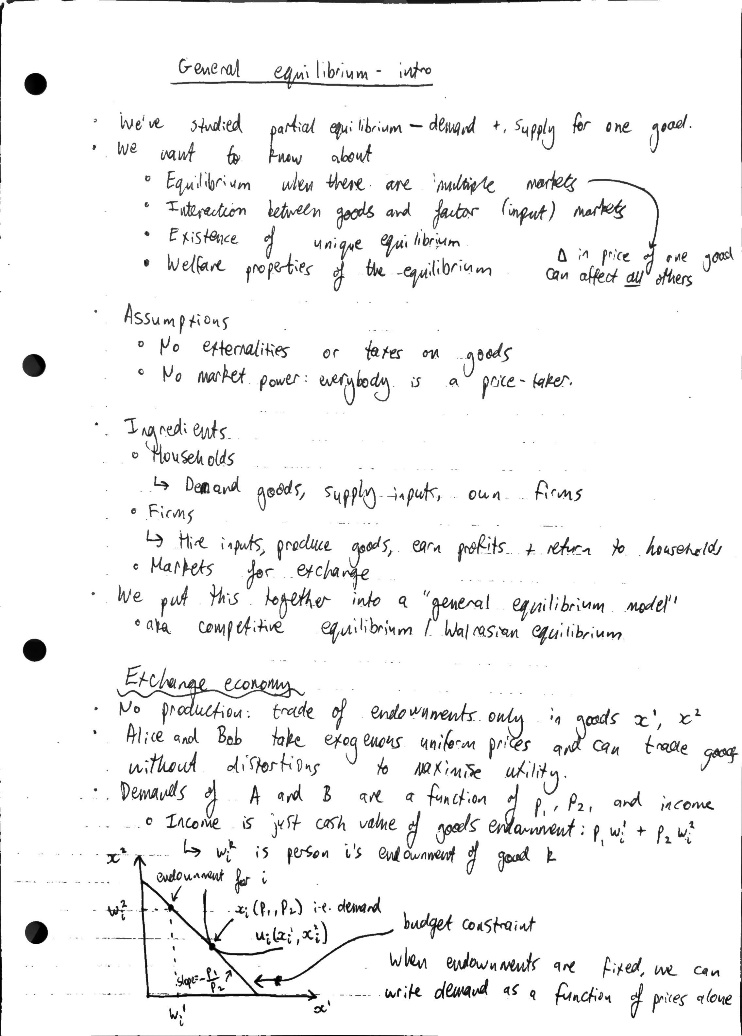 General equilibrium - intro
• We've studied partial equilibrium — demand + supply for one good.
• We want to know about
◦ Equilibrium when there are multiple markets
◦ Interaction between goods and factor (input) markets
• Existence of unique equilibrium
• Welfare properties of the equilibrium
Δ in price of one good
can affect all others
• Assumptions
◦ No externalities or taxes on goods
◦ No market power: everybody is a price-taker.
• Ingredients
◦ Households
↳ Demand goods, supply inputs, own firms
◦ Firms
↳ Hire inputs, produce goods, earn profits + return to households
◦ Markets for exchange
• We put this together into a "general equilibrium model"
◦ aka competitive equilibrium / Walrasian equilibrium
Exchange economy
• No production: trade of endownments only in goods x¹, x²
• Alice and Bob take exogenous uniform prices and can trade goods
without distortions to maximise utility.
• Demands of A and B are a function of p₁, p₂, and income
◦ Income is just cash value of goods endownment: p₁ wᵢ¹ + p₂ wᵢ²
↳ wᵢᵏ is person i's endownment of good k
x²
endownment for i
wᵢ²
xᵢ(p₁, p₂) i.e. demand
uᵢ(xᵢ¹, xᵢ²)
slope = -p₁/p₂
wᵢ¹
x¹
budget constraint
When endownments are fixed, we can
write demand as a function of prices alone